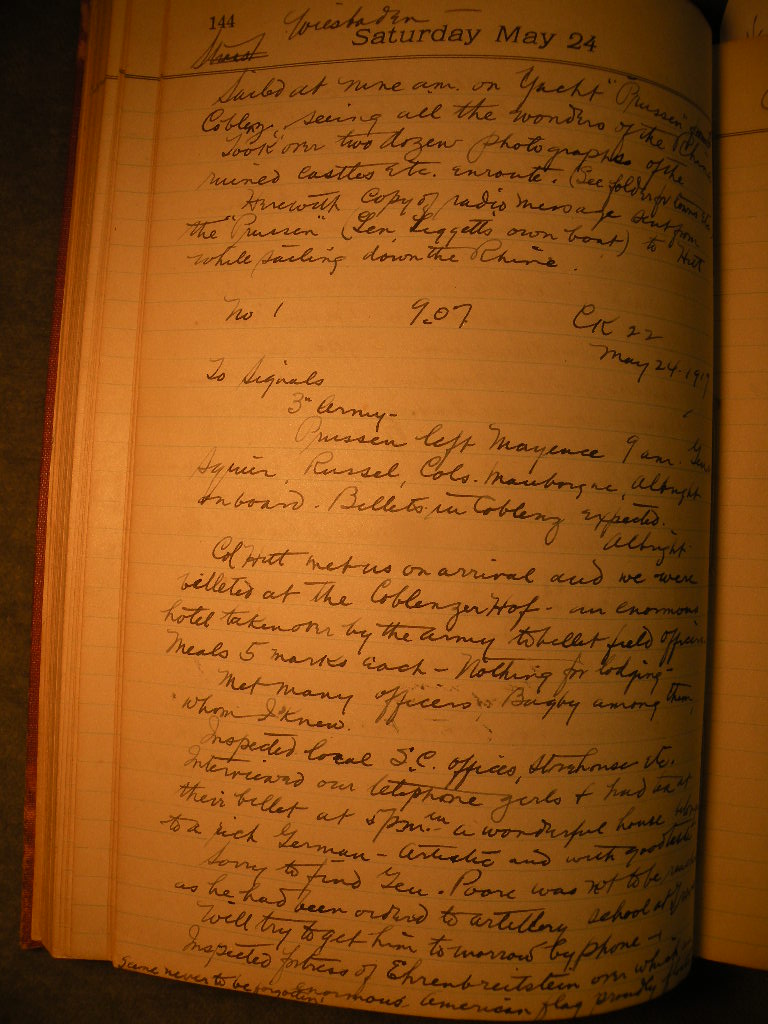 144 Wiesbaden
Saturday May 24
Sailed at nine am. on Yacht "Prussen"
Coblenz, seeing all the wonders of the Rhine
Took over two dozen photographs of the
ruined castles etc. enroute. (See folder for towns etc.
Herewith copy of radio message sent from
the "Prussen" (Gen Liggett's own boat) to Hitt
while sailing down the Rhine.
No 1 9.07 CK 22
May 24-1919
To Signals
3" Army-
Prussen left Mayence 9 am. Gens
Squier, Russel, Cols. Mauborgne, Albright
onboard. Billets in Coblenz expected.
Albright
Col Hitt met us on arrival and we were
billeted at the Coblenzer Hof - an enormous
hotel taken over by the army to billet field officers
Meals 5 marks each - Nothing for lodging -
Met many officers, Bagby among them,
whom I knew.
Inspected local S.C. offices, storehouse etc.
Interviewed our telephone girls & had tea at
their billet at 5 pm. in a wonderful house
to a rich German - artistic and with good taste
Sorry to find Gen. Poore was not to be
as he had been ordered to artillery school at
Will try to get him tomorrow by phone -
Inspected fortress of Ehrenbreitstein over which
enormous American flag proudly
Scene never to be forgotten!